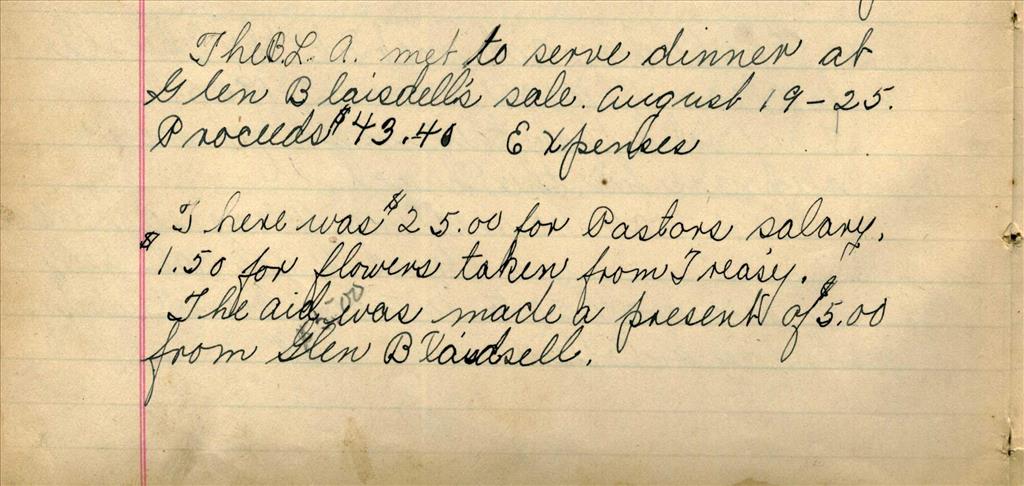 The B.L. A. met to serve dinner at
Glen Blaisdell's sale. August 19-25.
Proceeds $43.40 Expenses
There was $25.00 for Pastors salary.
$1.50 for flowers taken from Treas'y.
The aid was made a present of $5.00
from Glen Blaidsell.